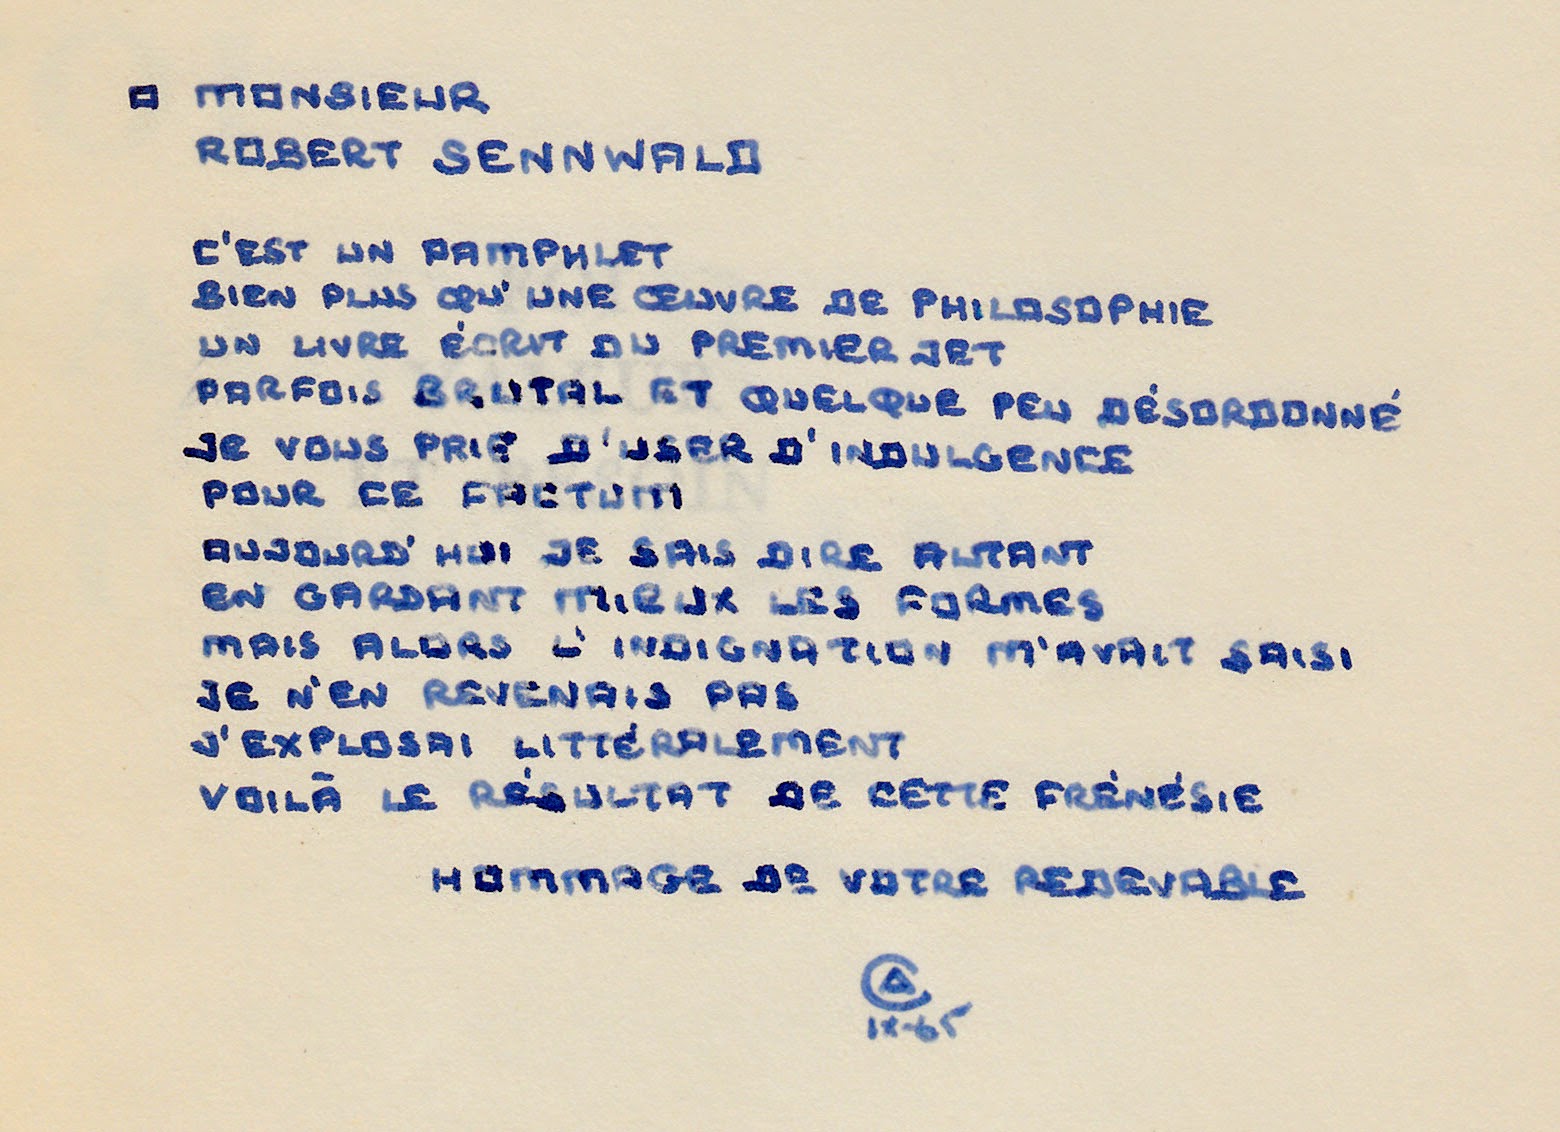 ▫ MONSIEUR
ROBERT SENNWALD
C'EST UN PAMPHLET
BIEN PLUS QU'UNE ŒUVRE DE PHILOSOPHIE
UN LIVRE ÉCRIT DU PREMIER JET
PARFOIS BRUTAL ET QUELQUE PEU DÉSORDONNÉ
JE VOUS PRIE D'USER D'INDULGENCE
POUR CE FACTUM
AUJOURD'HUI JE SAIS DIRE AUTANT
EN GARDANT MIEUX LES FORMES
MAIS ALORS L'INDIGNATION M'AVAIT SAISI
JE N'EN REVENAIS PAS
J'EXPLOSAI LITTÉRALEMENT
VOILÀ LE RÉSULTAT DE CETTE FRÉNÉSIE
HOMMAGE DE VOTRE REDEVABLE
CA
IX-65